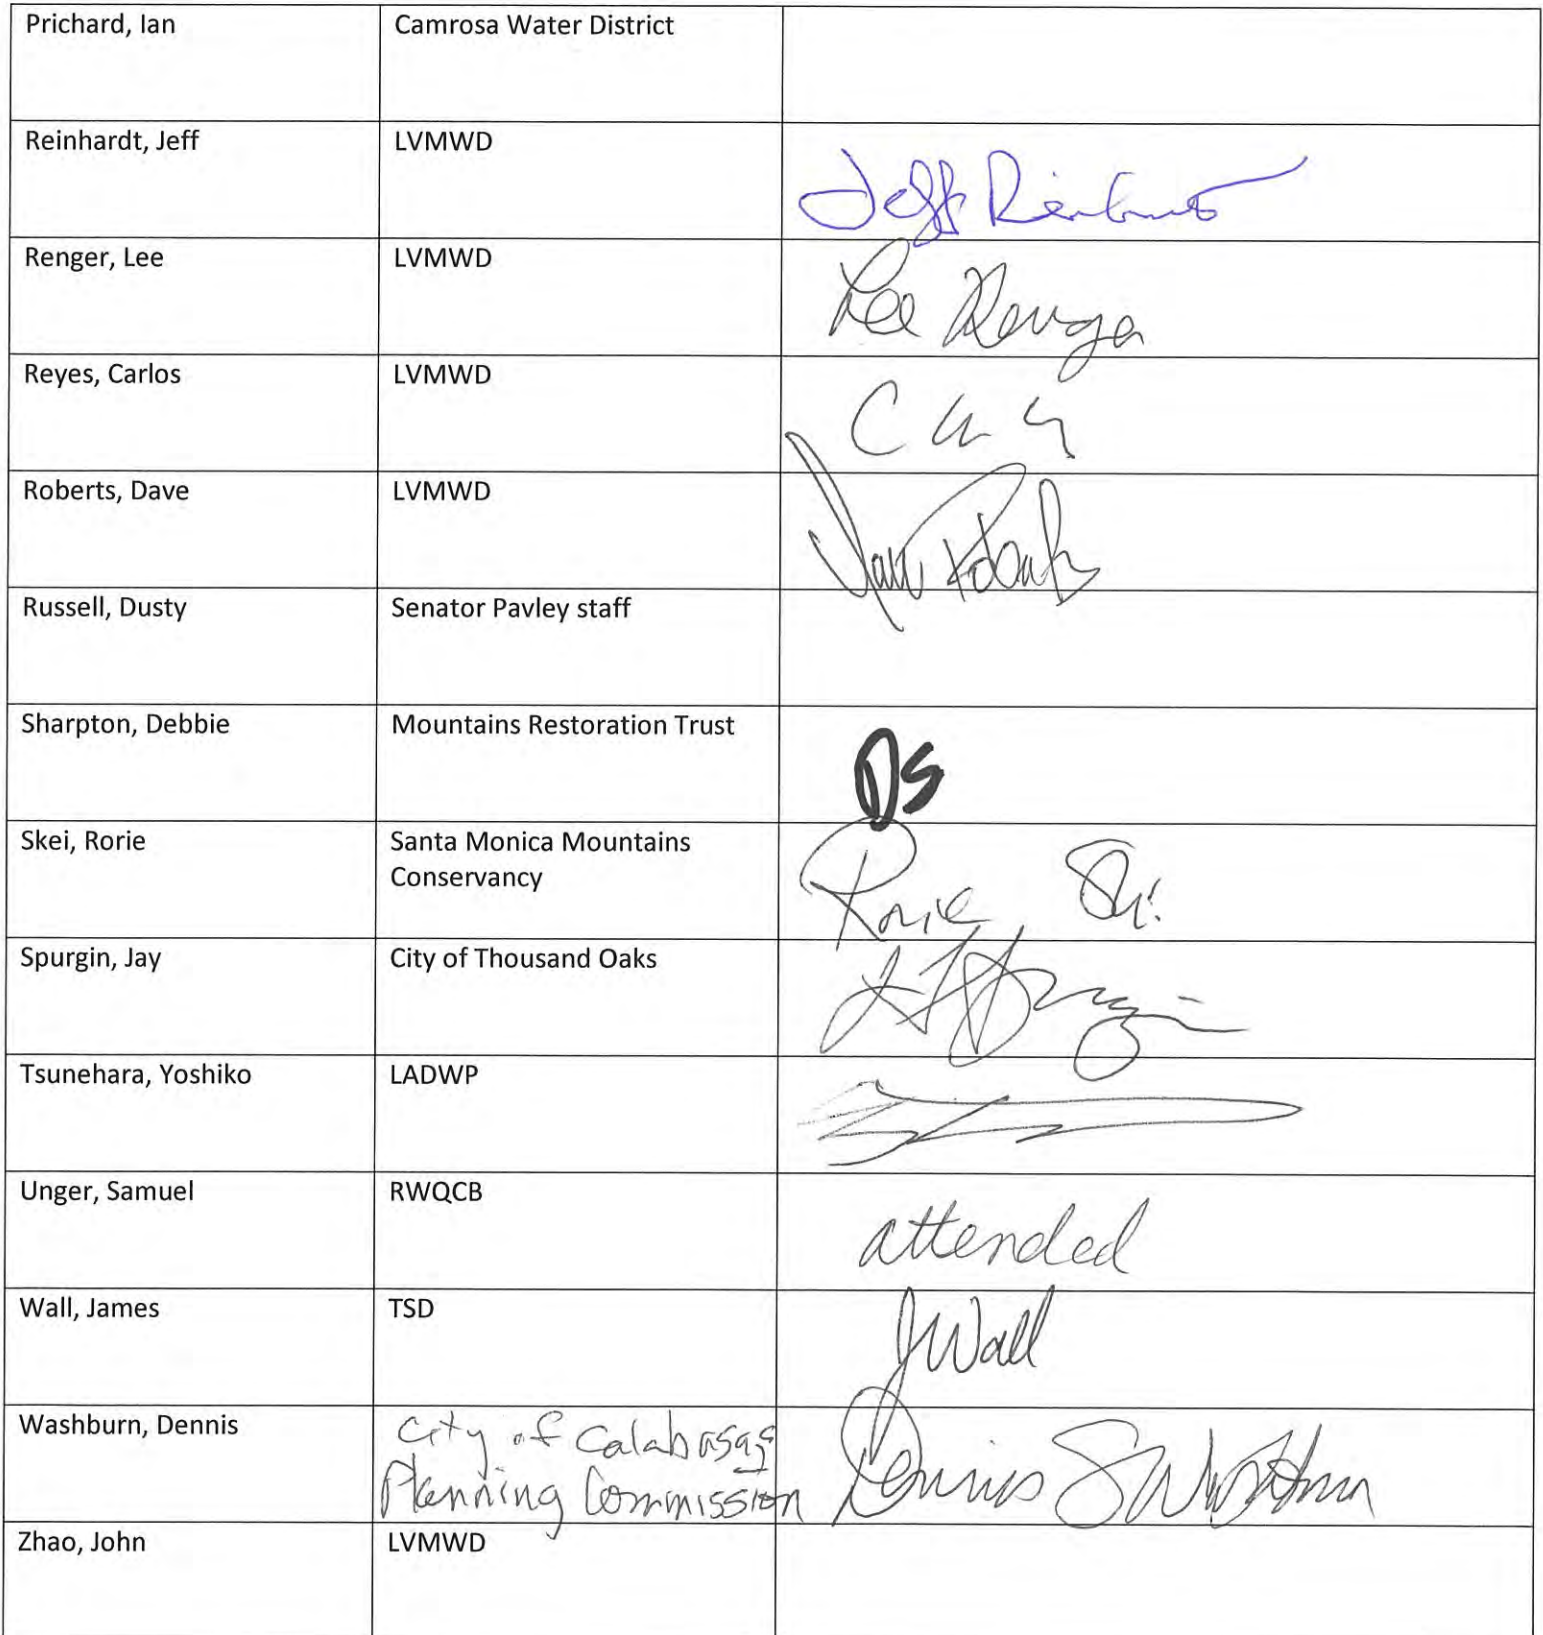 Prichard, Ian Camrosa Water District
Reinhardt, Jeff LVMWD Jeff
Renger, Lee LVMWD Lee Renger
Reyes, Carlos LVMWD
Roberts, Dave LVMWD
Russell, Dusty Senator Pavley staff
Sharpton, Debbie Mountains Restoration Trust DS
Skei, Rorie Santa Monica Mountains
Conservancy Rorie
Spurgin, Jay City of Thousand Oaks
Tsunehara, Yoshiko LADWP
Unger, Samuel RWQCB attended
Wall, James TSD JWall
Washburn, Dennis City of Calabasas
Planning Commission Dennis S Washburn
Zhao, John LVMWD